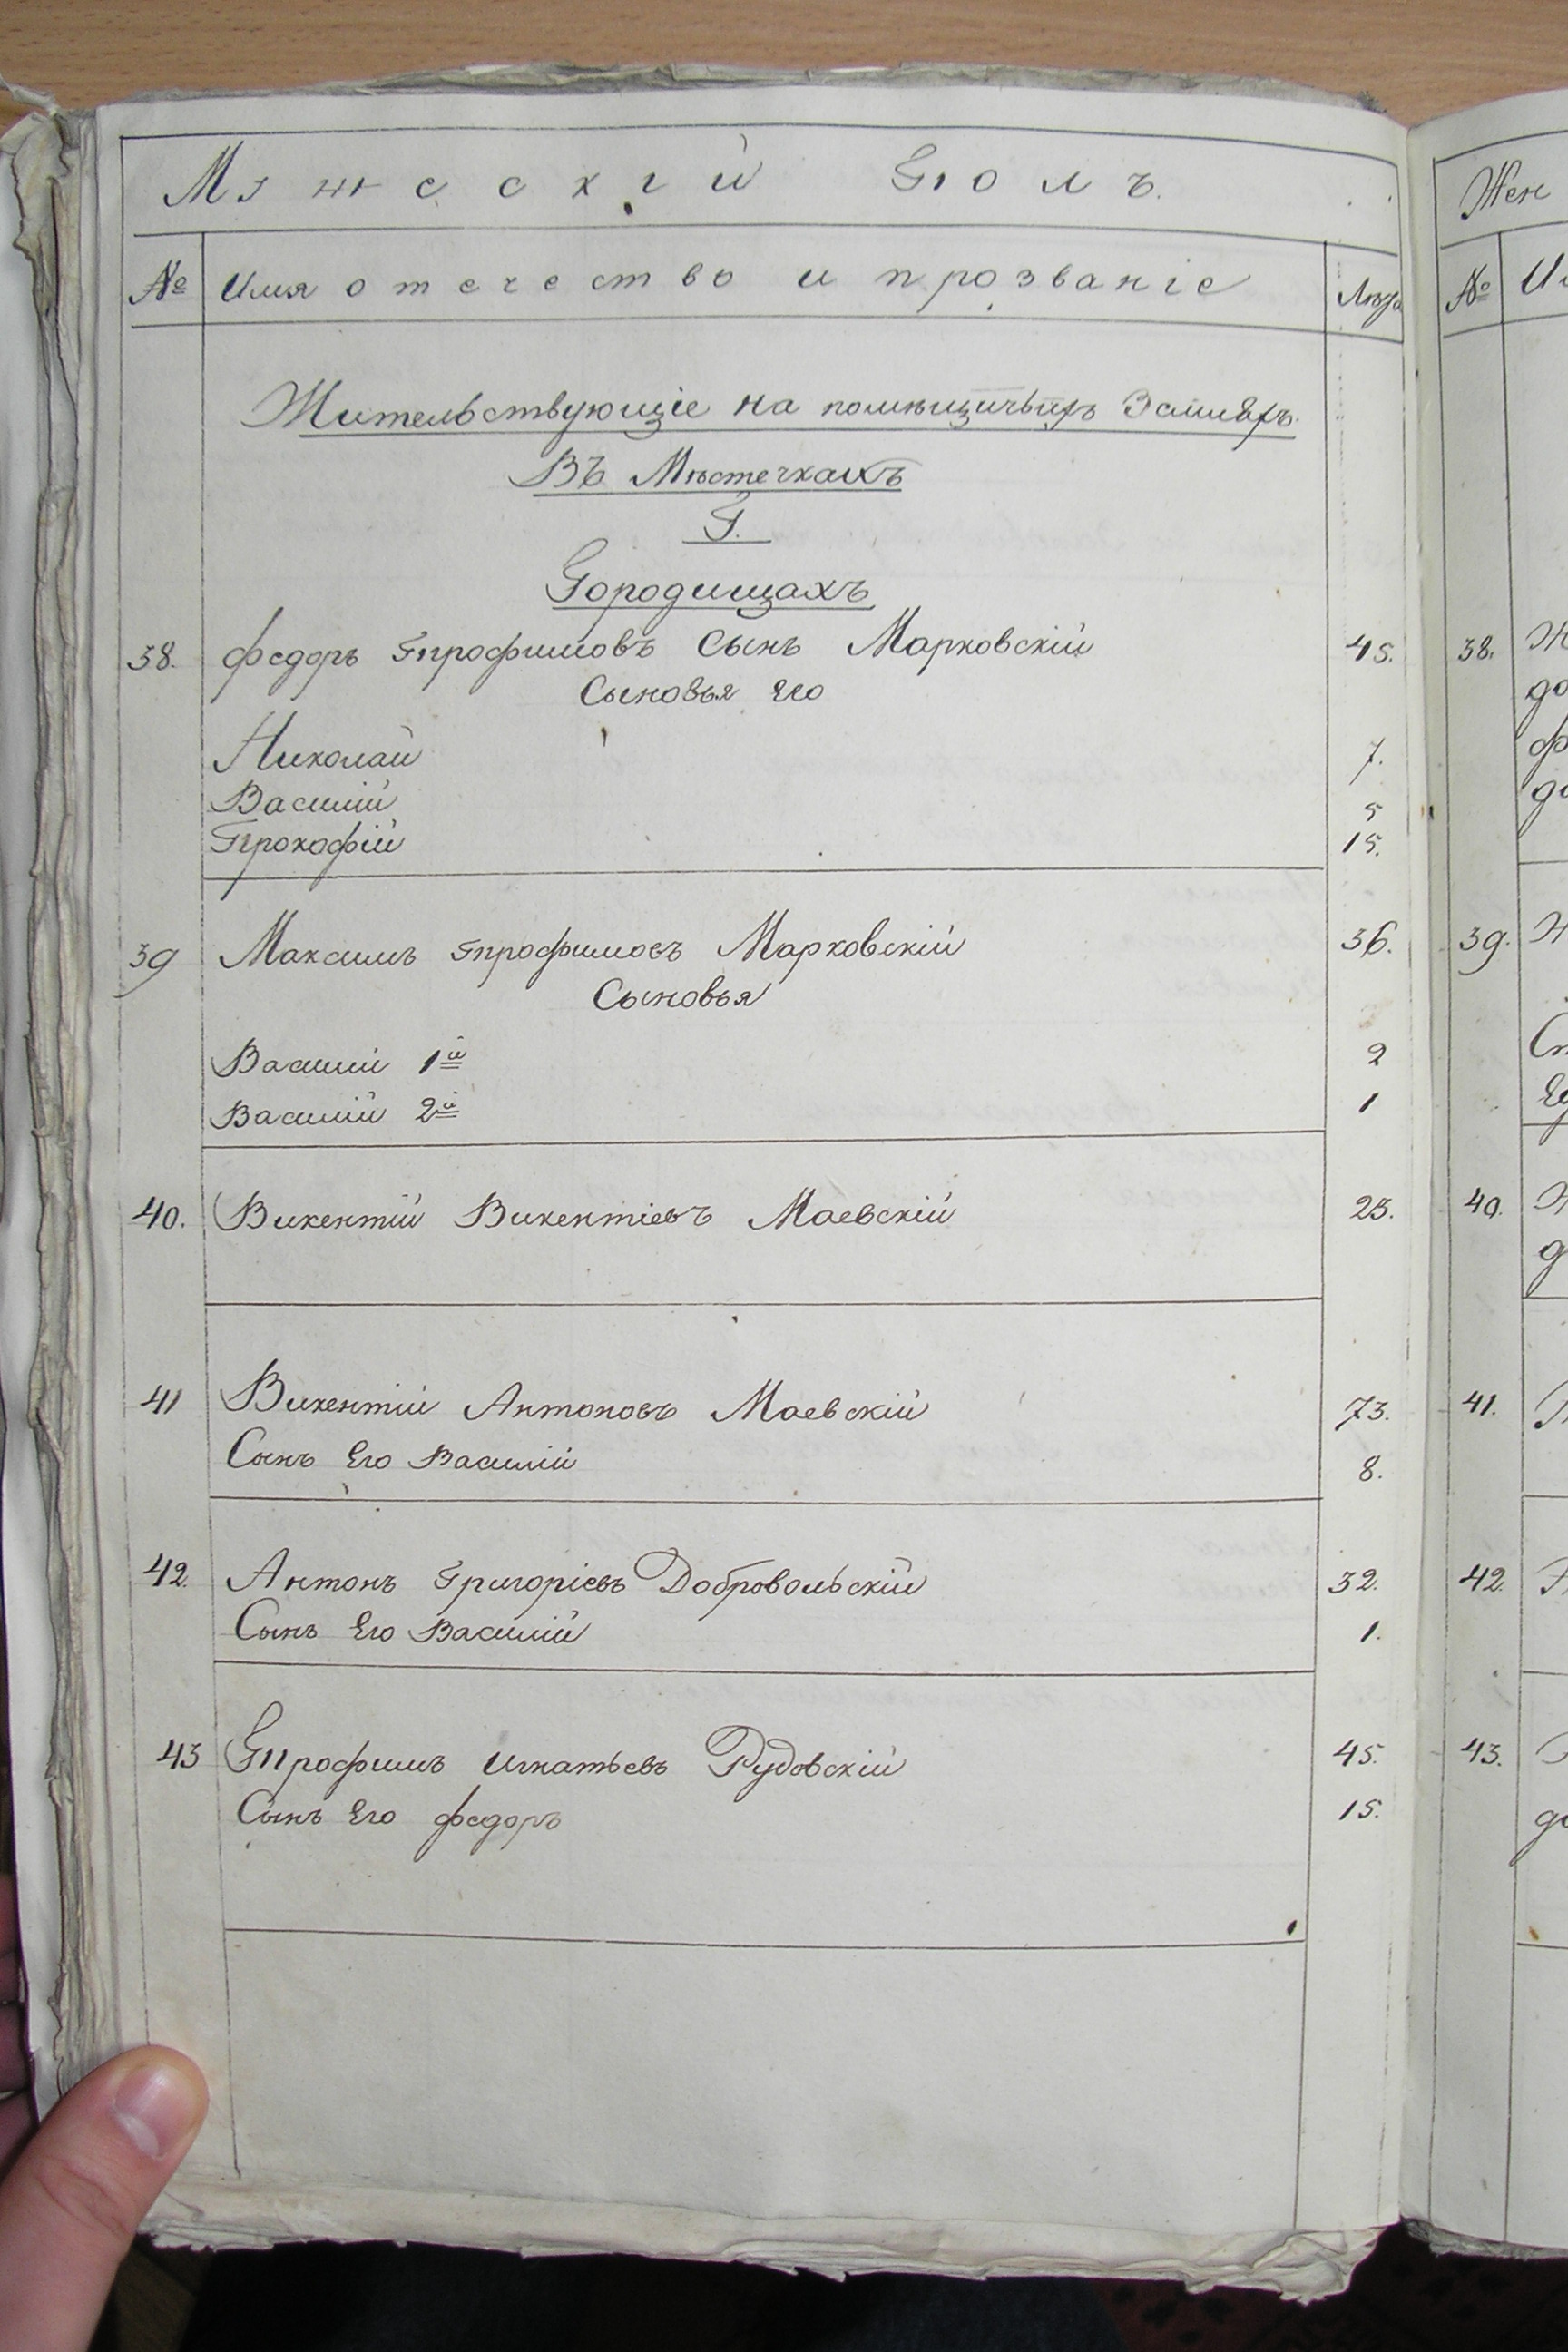 Мужескій Полъ.
№ Имя отечество и прозваніе Лѣта
Жительствующіе на помѣщичьихъ Землѣхъ.
Въ Мѣстечкахъ
Г.
Городищахъ
38. Федоръ Трофимовъ Сынъ Марковскій 45.
Сыновья Его
Николай 7.
Василій 5
Прокофій 15.
39 Максимъ Трофимовъ Марковскій 36.
Сыновья
Василій 1й 2
Василій 2й 1
40. Викентій Викентіевъ Маевскій 25.
41 Викентій Антоновъ Маевскій 73.
Сынъ Его Василій 8.
42. Антонъ Григоріевъ Добровольскій 32.
Сынъ Его Василій 1.
43 Трофимъ Игнатьевъ Рудовскій 45.
Сынъ Его Федоръ 15.
Жен
№ И
38.
39.
40.
41.
42.
43.